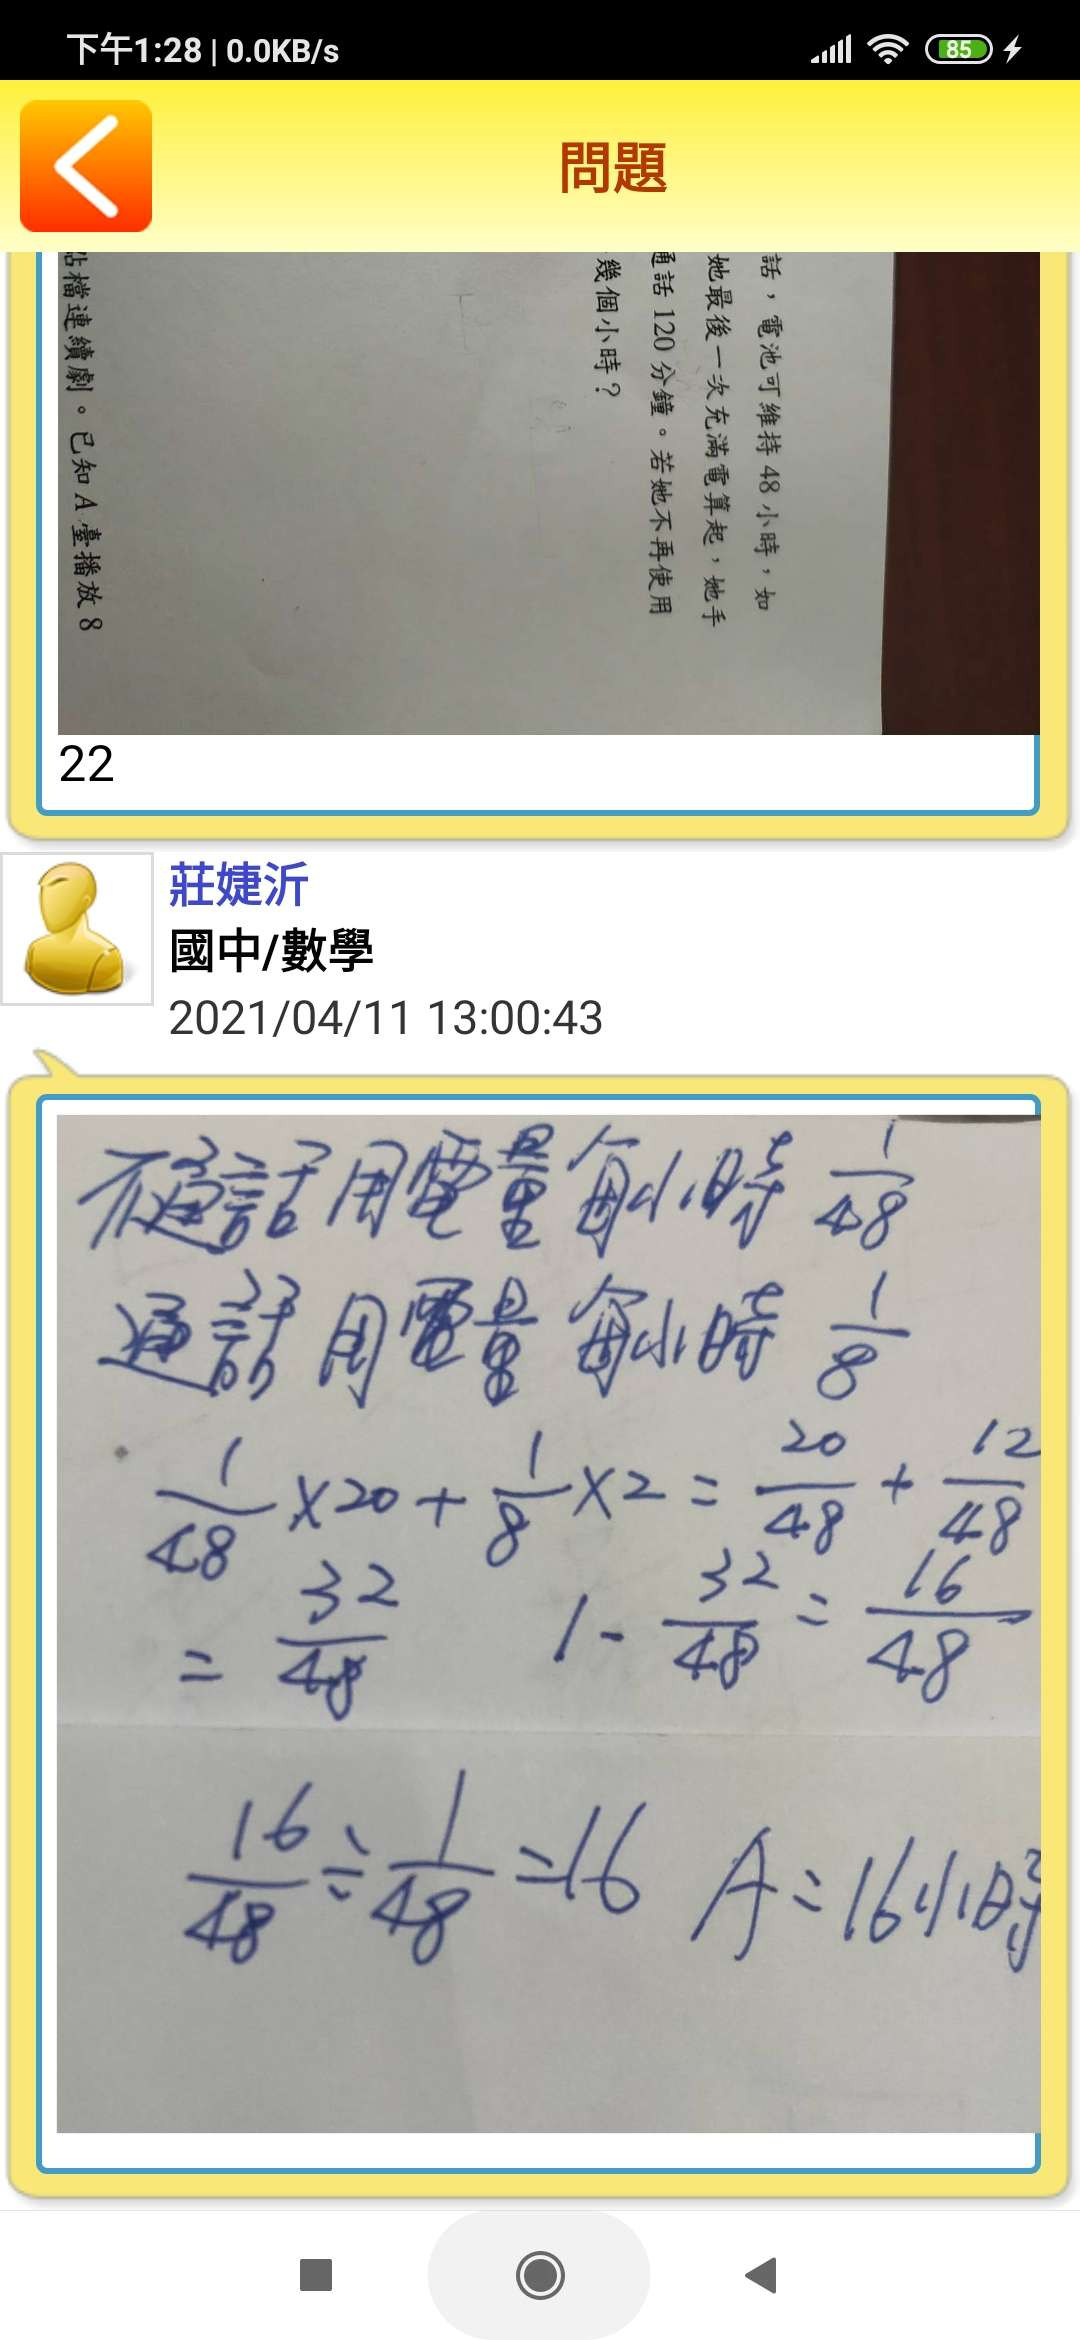 下午1:28 | 0.0KB/s
85
問題
話，電池可維持 48 小時，如
她最後一次充滿電算起，她手
通話 120 分鐘。若她不再使用
幾個小時？
點檔連續劇。已知 A 臺播放 8
22
莊婕沂
國中/數學
2021/04/11 13:00:43
不通話用電量每小時 1/48
通話用電量每小時 1/8
1/48 ×20 + 1/8 ×2 = 20/48 + 12/48
= 32/48 1 - 32/48 = 16/48
16/48 ÷ 1/48 = 16 A = 16小時